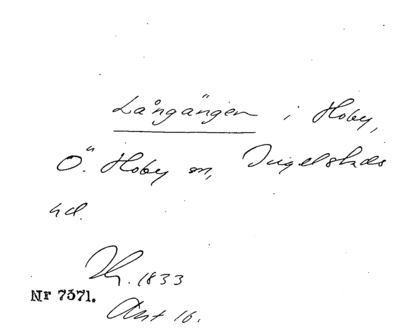 Långängen i Hoby,
Ö. Hoby sn, Ingelstads
hd.
1833
Nr 7371.
Akt 16.